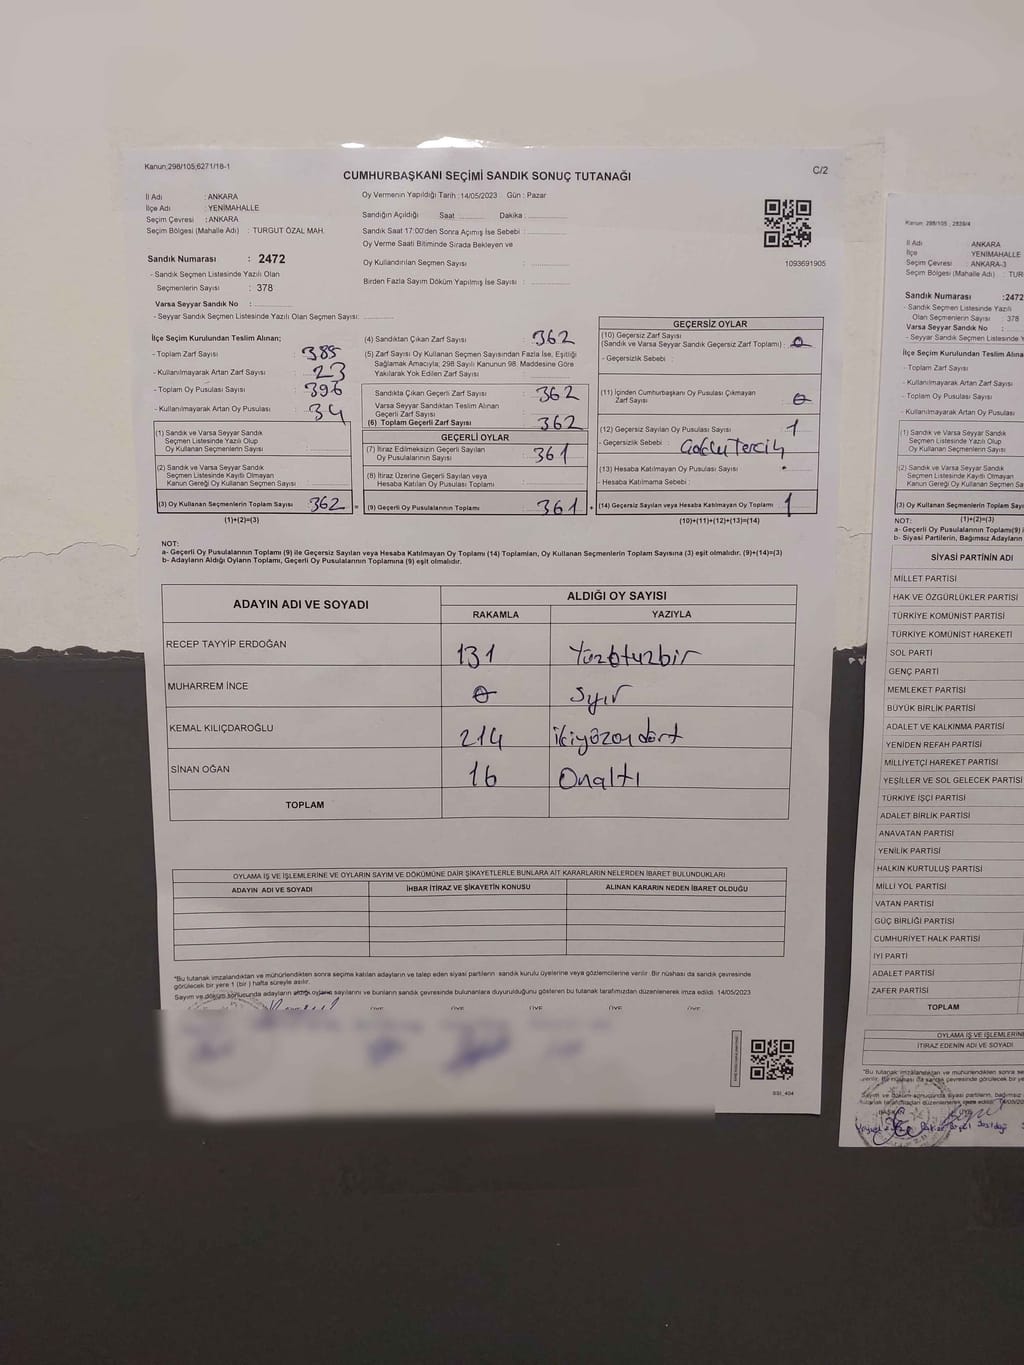 Kanun;298/105;6271/18-1
C/2
CUMHURBAŞKANI SEÇİMİ SANDIK SONUÇ TUTANAĞI
İl Adı : ANKARA
İlçe Adı : YENİMAHALLE
Seçim Çevresi : ANKARA
Seçim Bölgesi (Mahalle Adı) : TURGUT ÖZAL MAH.
Oy Vermenin Yapıldığı Tarih : 14/05/2023 Gün : Pazar
Sandığın Açıldığı Saat Dakika :
Sandık Saat 17:00'den Sonra Açımış İse Sebebi :
Oy Verme Saati Bitiminde Sırada Bekleyen ve
Oy Kullandırılan Seçmen Sayısı :
Birden Fazla Sayım Döküm Yapılmış İse Sayısı :
1093691905
Sandık Numarası : 2472
- Sandık Seçmen Listesinde Yazılı Olan
Seçmenlerin Sayısı : 378
Varsa Seyyar Sandık No :
- Seyyar Sandık Seçmen Listesinde Yazılı Olan Seçmen Sayısı:
İlçe Seçim Kurulundan Teslim Alınan;
- Toplam Zarf Sayısı : 385
- Kullanılmayarak Artan Zarf Sayısı : 23
- Toplam Oy Pusulası Sayısı : 396
- Kullanılmayarak Artan Oy Pusulası : 34
(1) Sandık ve Varsa Seyyar Sandık
Seçmen Listesinde Yazılı Olup
Oy Kullanan Seçmenlerin Sayısı :
(2) Sandık ve Varsa Seyyar Sandık
Seçmen Listesinde Kayıtlı Olmayan
Kanun Gereği Oy Kullanan Seçmen Sayısı :
(3) Oy Kullanan Seçmenlerin Toplam Sayısı 362
(1)+(2)=(3)
(4) Sandıktan Çıkan Zarf Sayısı : 362
(5) Zarf Sayısı Oy Kullanan Seçmen Sayısından Fazla İse, Eşitliği
Sağlamak Amacıyla; 298 Sayılı Kanunun 98. Maddesine Göre
Yakılarak Yok Edilen Zarf Sayısı :
Sandıkta Çıkan Geçerli Zarf Sayısı : 362
Varsa Seyyar Sandıktan Teslim Alınan
Geçerli Zarf Sayısı :
(6) Toplam Geçerli Zarf Sayısı : 362
GEÇERLİ OYLAR
(7) İtiraz Edilmeksizin Geçerli Sayılan
Oy Pusulalarının Sayısı : 361
(8) İtiraz Üzerine Geçerli Sayılan veya
Hesaba Katılan Oy Pusulası Toplamı :
= (9) Geçerli Oy Pusulalarının Toplamı : 361
GEÇERSİZ OYLAR
(10) Geçersiz Zarf Sayısı
(Sandık ve Varsa Seyyar Sandık Geçersiz Zarf Toplamı) : 0
- Geçersizlik Sebebi :
(11) İçinden Cumhurbaşkanı Oy Pusulası Çıkmayan
Zarf Sayısı : 0
(12) Geçersiz Sayılan Oy Pusulası Sayısı : 1
- Geçersizlik Sebebi : Çoklu Tercih
(13) Hesaba Katılmayan Oy Pusulası Sayısı :
- Hesaba Katılmama Sebebi :
+ (14) Geçersiz Sayılan veya Hesaba Katılmayan Oy Toplamı 1
(10)+(11)+(12)+(13)=(14)
NOT:
a- Geçerli Oy Pusulalarının Toplamı (9) ile Geçersiz Sayılan veya Hesaba Katılmayan Oy Toplamı (14) Toplamları, Oy Kullanan Seçmenlerin Toplam Sayısına (3) eşit olmalıdır. (9)+(14)=(3)
b- Adayların Aldığı Oyların Toplamı, Geçerli Oy Pusulalarının Toplamına (9) eşit olmalıdır.
ADAYIN ADI VE SOYADI ALDIĞI OY SAYISI
RAKAMLA YAZIYLA
RECEP TAYYİP ERDOĞAN 131 Yüzotuzbir
MUHARREM İNCE 0 Sıfır
KEMAL KILIÇDAROĞLU 214 ikiyüzondört
SİNAN OĞAN 16 Onaltı
TOPLAM
OYLAMA İŞ VE İŞLEMLERİNE VE OYLARIN SAYIM VE DÖKÜMÜNE DAİR ŞİKAYETLERLE BUNLARA AİT KARARLARIN NELERDEN İBARET BULUNDUKLARI
ADAYIN ADI VE SOYADI İHBAR İTİRAZ VE ŞİKAYETİN KONUSU ALINAN KARARIN NEDEN İBARET OLDUĞU
*Bu tutanak imzalandıktan ve mühürlendikten sonra seçime katılan adayların ve talep eden siyasi partilerin sandık kurulu üyelerine veya gözlemcilerine verilir. Bir nüshası da sandık çevresinde
görülecek bir yere 1 (bir) hafta süreyle asılır.
Sayım ve döküm sonucunda adayların aldığı oyların sayılarını ve bunların sandık çevresinde bulunanlara duyurulduğunu gösteren bu tutanak tarafımızdan düzenlenerek imza edildi. 14/05/2023
ÜYE ÜYE ÜYE ÜYE
SSI_404
Kanun; 298/105 ; 2839/4
İl Adı : ANKARA
İlçe : YENİMAHALLE
Seçim Çevresi : ANKARA-3
Seçim Bölgesi (Mahalle Adı) : TUR
Sandık Numarası :2472
- Sandık Seçmen Listesinde Yazılı
Olan Seçmenlerin Sayısı : 378
Varsa Seyyar Sandık No :
- Seyyar Sandık Seçmen Listesinde Y
İlçe Seçim Kurulundan Teslim Alınan
- Toplam Zarf Sayısı
- Kullanılmayarak Artan Zarf Sayısı
- Toplam Oy Pusulası Sayısı
- Kullanılmayarak Artan Oy Pusulası
(1) Sandık ve Varsa Seyyar Sandık
Seçmen Listesinde Yazılı Olup
Oy Kullanan Seçmenlerin Sayısı
(2) Sandık ve Varsa Seyyar Sandık
Seçmen Listesinde Kayıtlı Olmayan
Kanun Gereği Oy Kullanan Seçmen Sa
(3) Oy Kullanan Seçmenlerin Toplam Sayısı
(1)+(2)=(3)
NOT:
a- Geçerli Oy Pusulalarının Toplamı(9)
b- Siyasi Partilerin, Bağımsız Adayların
SİYASİ PARTİNİN ADI
MİLLET PARTİSİ
HAK VE ÖZGÜRLÜKLER PARTİSİ
TÜRKİYE KOMÜNİST PARTİSİ
TÜRKİYE KOMÜNİST HAREKETİ
SOL PARTİ
GENÇ PARTİ
MEMLEKET PARTİSİ
BÜYÜK BİRLİK PARTİSİ
ADALET VE KALKINMA PARTİSİ
YENİDEN REFAH PARTİSİ
MİLLİYETÇİ HAREKET PARTİSİ
YEŞİLLER VE SOL GELECEK PARTİSİ
TÜRKİYE İŞÇİ PARTİSİ
ADALET BİRLİK PARTİSİ
ANAVATAN PARTİSİ
YENİLİK PARTİSİ
HALKIN KURTULUŞ PARTİSİ
MİLLİ YOL PARTİSİ
VATAN PARTİSİ
GÜÇ BİRLİĞİ PARTİSİ
CUMHURİYET HALK PARTİSİ
İYİ PARTİ
ADALET PARTİSİ
ZAFER PARTİSİ
TOPLAM
OYLAMA İŞ VE İŞLEMLERİNE
İTİRAZ EDENİN ADI VE SOYADI